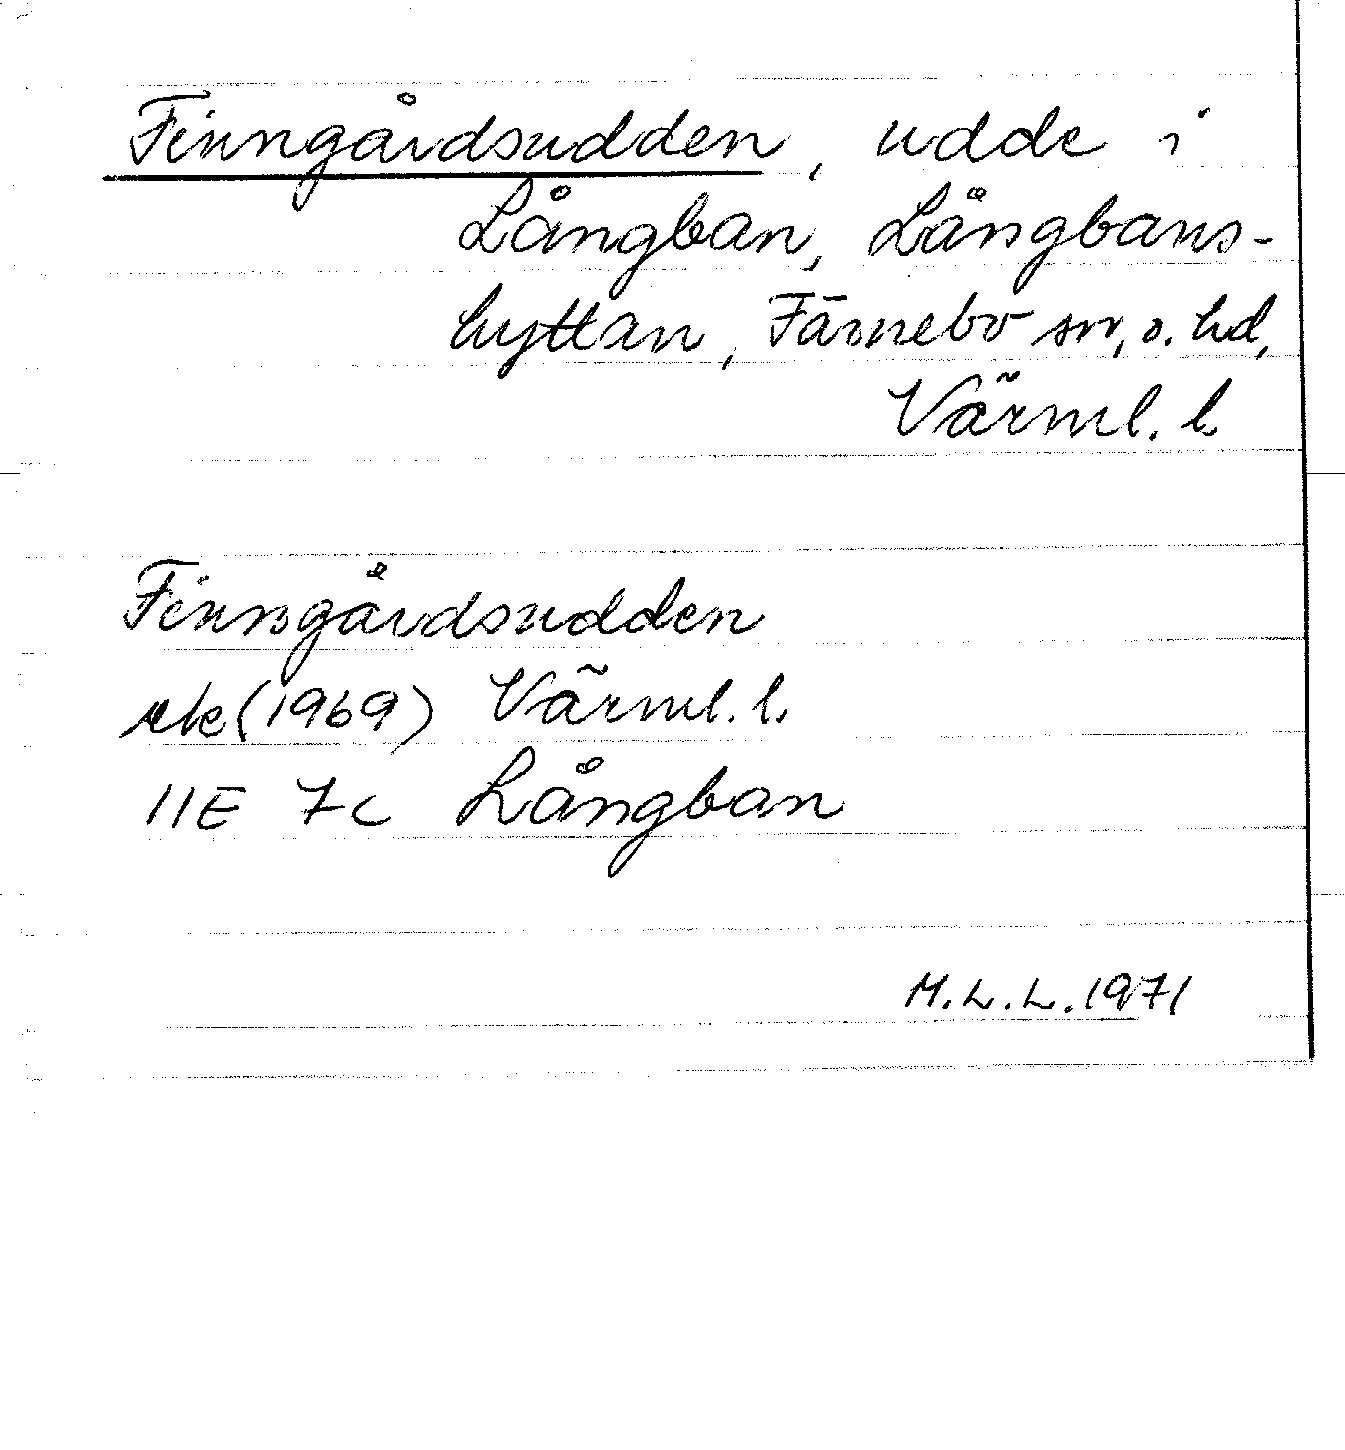 Finngårdsudden, udde i
Långban, Långbans-
hyttan, Färnebo sn, o. hd,
Värml. l.
Finngårdsudden
ek (1969) Värml. l.
11E 7c Långban
M.L.L. 1971